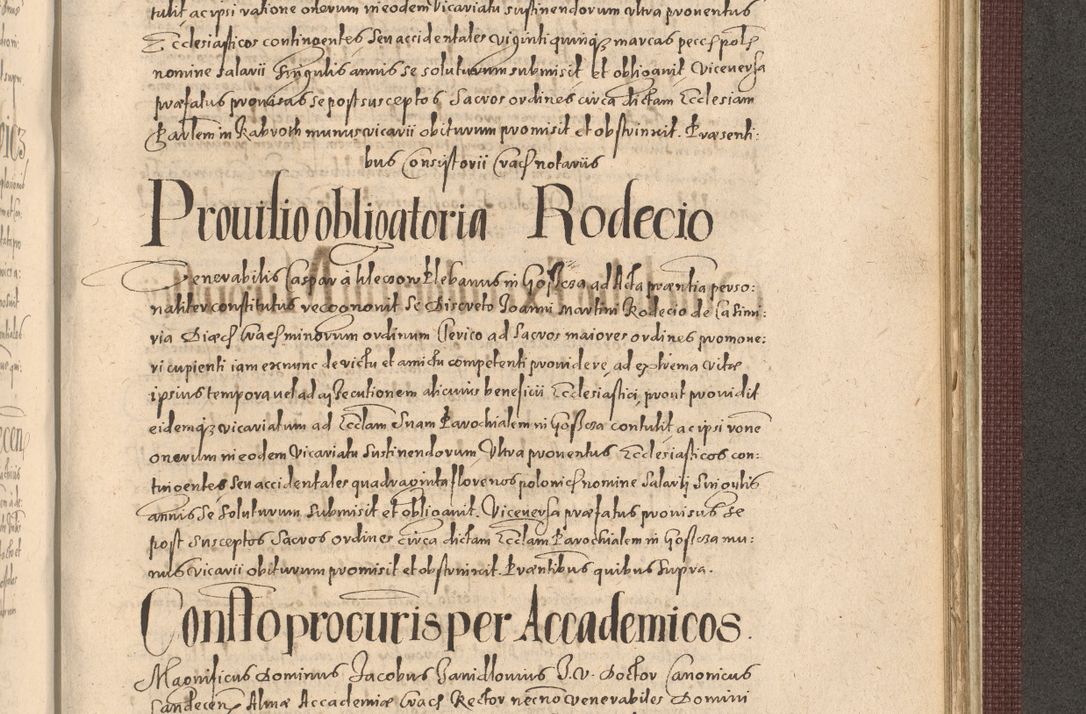 tulit ac ipsi ratione onerum in eodem vicariatu sustinendorum ultra proventus
Ecclesiasticos contingentes seu accidentales viginti quinq3 marcas pecc pols
nomine salarii singulis annis se soluturum submisit et obligavit. Viceversa
præfatus provisus se post susceptos Sacros ordines circa dictam Ecclesiam
Parlem in Rabroth munus vicarii obiturum promisit et obstrinxit. Præsenti:
bus Consistorii Cracs notariis
Provisio obligatoria Rodecio
Venerabilis Caspar à Plebanus in Goszcza ad Acta præntia perso:
naliter constitutus recognovit Se Discreto Joanni Martini Rodecio de Casimi:
ria Diæcs Cracs minorum ordinum Clerico ad Sacros maiores ordines promove:
ri cupienti iam ex nunc de victu et amictu competenti providere, ad extrema vitæ
ipsius tempora vel ad assecutionem alicuius beneficii Ecclesiastici, prout providit
eidemq3 vicariatum ad Ecclam Suam Parochialem in Goszcza contulit ac ipsi rone
onerum in eodem Vicariatu Sustinendorum Ultra proventus Ecclesiasticos con:
tingentes Seu accidentales quadraginta florenos polonics nomine Salarii Singulis
annis Se Soluturum Submisit et obligavit. Viceversa præfatus provisus Se
post Susceptos Sacros ordines circa dictam Ecclam Parochialem in Goszcza mu:
nus vicarii obiturum promisit et obstrinxit. Præntibus quibus Supra.
Constto procuris per Accademicos.
Magnificus Dominus Jacobus Janidlovius J.V. Doctor Canonicus
Sandecen Almæ Accademiæ Cracs Rector necno venerabiles Domini